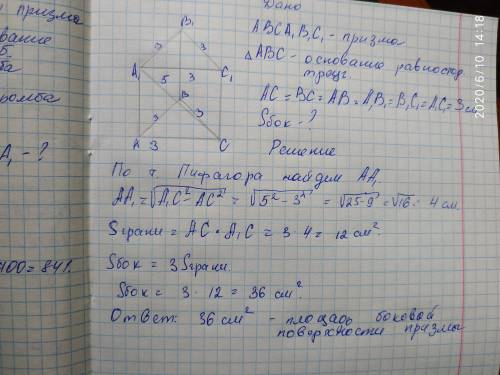 призма
вание
ба
ромба
A₁ - ?
400 = 841.
B₁
3
3
A₁
C₁
5
3
B
3
3
A
3
C
Дано
ABCA₁B₁C₁ - призма
△ABC - основание равностор.
треуг.
AC = BC = AB = A₁B₁ = B₁C₁ = A₁C₁ = 3 см
Sбок - ?
Решение
По т. Пифагора найдем AA₁
AA₁ = √A₁C² - AC² = √5² - 3² = √25-9 = √16 = 4 см
Sграни = AC • A₁C = 3 • 4 = 12 см².
Sбок = 3 Sграни.
Sбок = 3 • 12 = 36 см².
Ответ: 36 см² - площадь боковой
поверхности призмы
2020/6/10 14:18